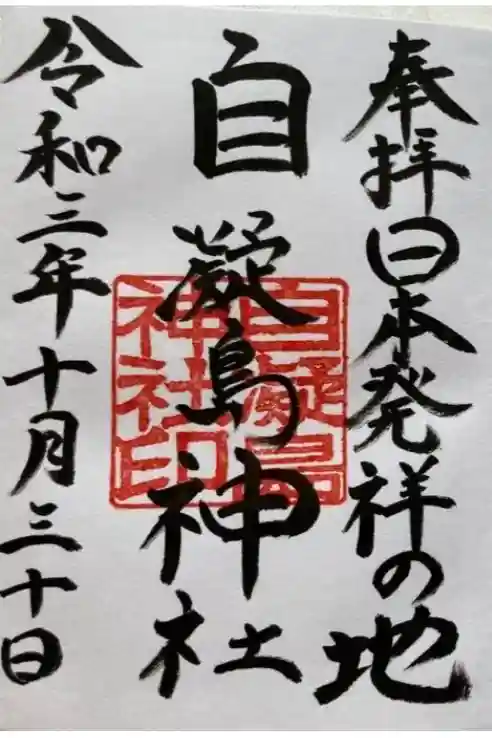 奉拝日本発祥の地
自凝島神社
令和三年十月三十日
自凝島
神社印